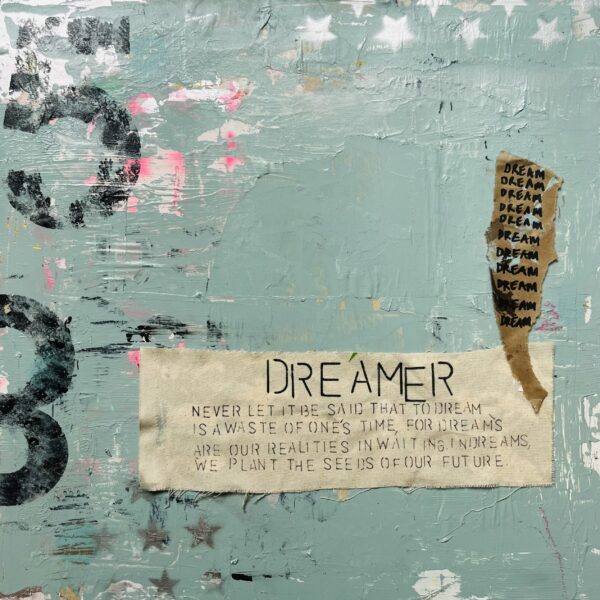 DREAM
DREAM
DREAM
DREAM
DREAM
DREAM
DREAM
DREAM
DREAM
DREAM
DREAM
DREAMER
NEVER LET IT BE SAID THAT TO DREAM
IS A WASTE OF ONE'S TIME, FOR DREAMS
ARE OUR REALITIES IN WAITING. IN DREAMS,
WE PLANT THE SEEDS OF OUR FUTURE.